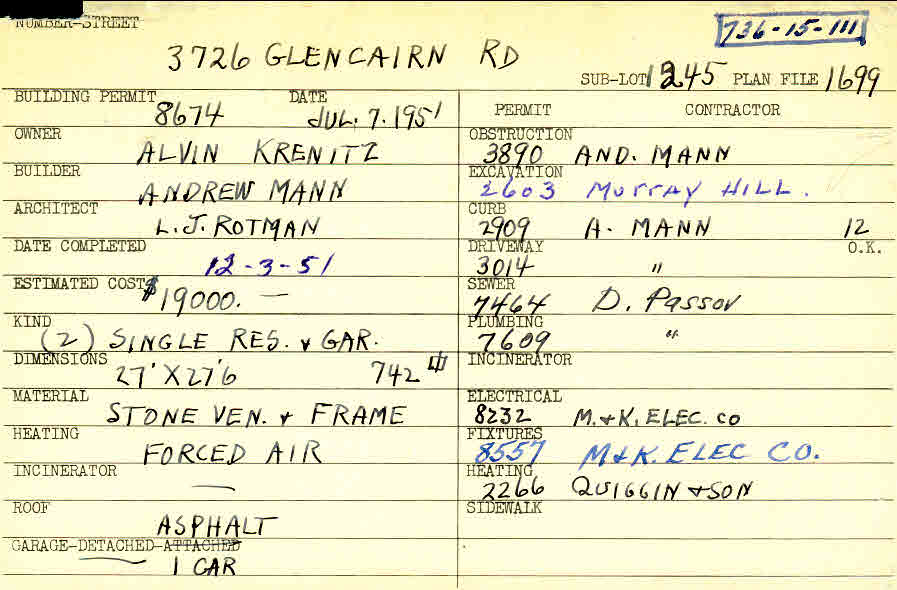 NUMBER-STREET
736-15-111
3726 GLENCAIRN RD
SUB-LOT 1245 PLAN FILE 1699
BUILDING PERMIT DATE
8674 JUL. 7. 1951
OWNER
ALVIN KRENITZ
BUILDER
ANDREW MANN
ARCHITECT
L. J. ROTMAN
DATE COMPLETED
12-3-51
ESTIMATED COST
$19000. —
KIND
(2) SINGLE RES. & GAR.
DIMENSIONS
27' X 27'6 742
MATERIAL
STONE VEN. & FRAME
HEATING
FORCED AIR
INCINERATOR
—
ROOF
ASPHALT
GARAGE-DETACHED-ATTACHED
1 CAR
PERMIT CONTRACTOR
OBSTRUCTION
3890 AND. MANN
EXCAVATION
2603 MURRAY HILL.
CURB
2909 A. MANN 12
DRIVEWAY O.K.
3014 "
SEWER
7464 D. PASSOV
PLUMBING
7609 "
INCINERATOR
ELECTRICAL
8232 M. & K. ELEC. CO
FIXTURES
8557 M & K. ELEC CO.
HEATING
2266 QUIGGIN & SON
SIDEWALK